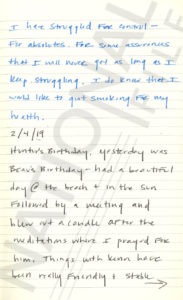 I have struggled for control -
for absolutes. For some assurances
that I will never get as long as I
keep struggling. I do know that I
would like to quit smoking for my
health.
2/4/19
Hunter's Birthday, yesterday was
Beau's Birthday - had a beautiful
day @ the beach + in the sun
followed by a meeting and
blew out a candle after the
meditations where I prayed for
him. Things with have
been really friendly + stable
NATIONAL